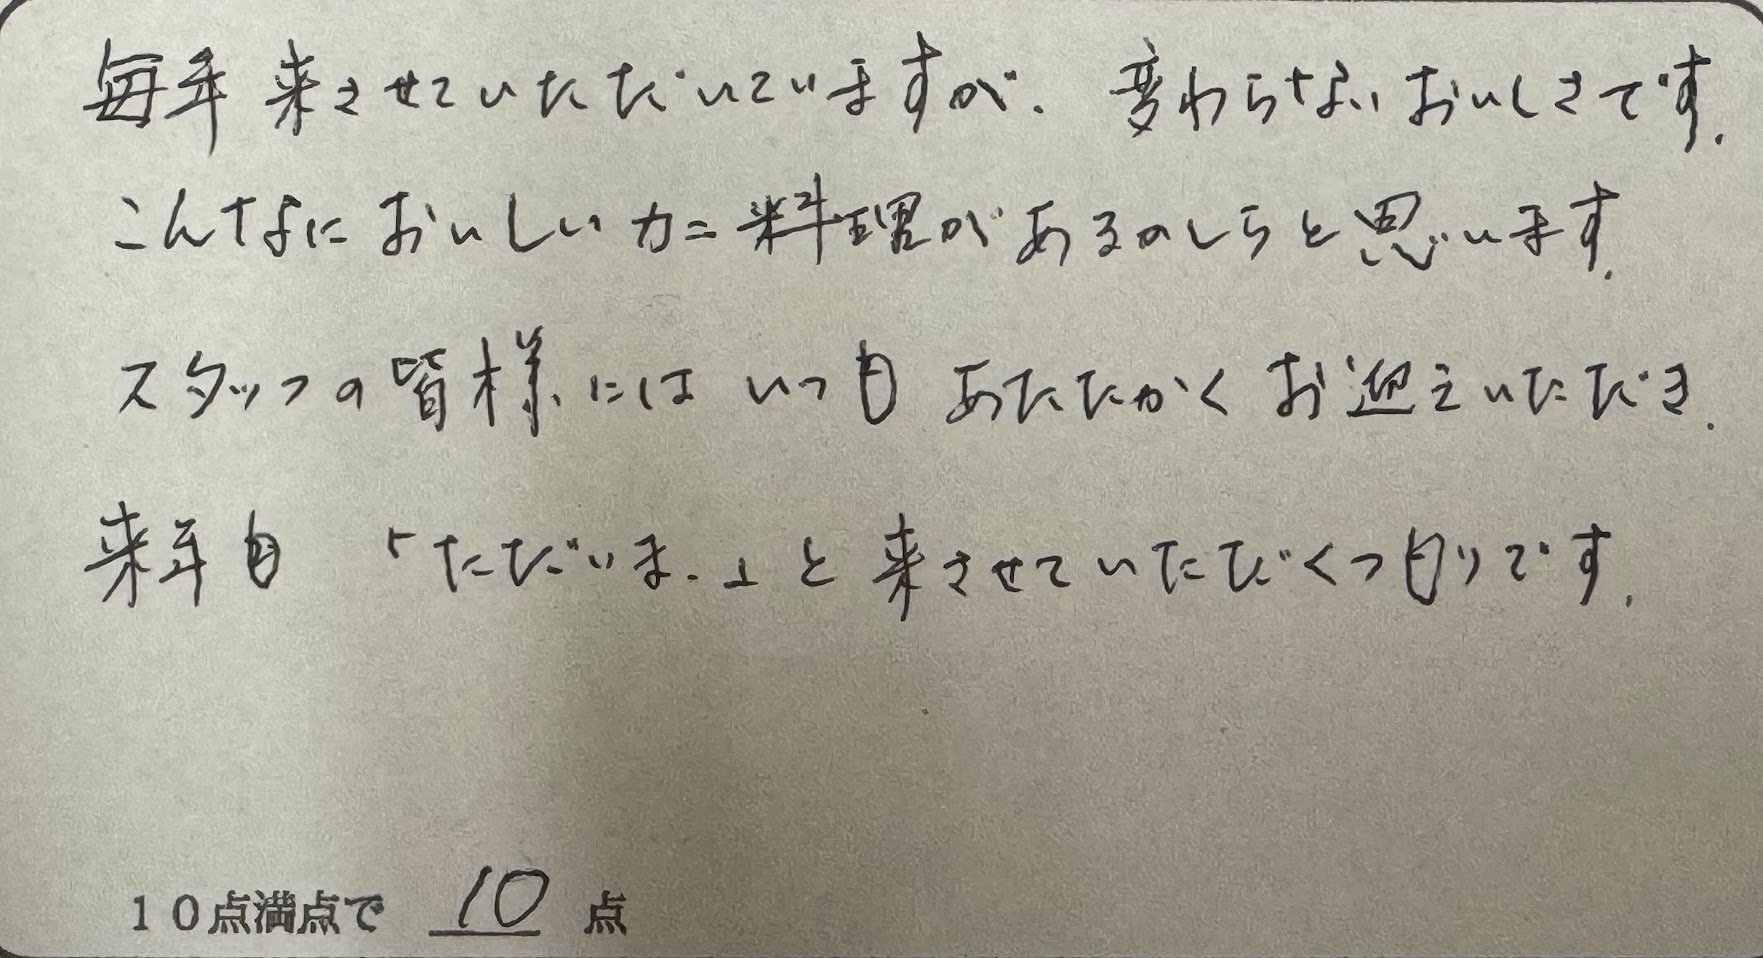 毎年来させていただいていますが、変わらないおいしさです。
こんなにおいしいカニ料理があるのしらと思います。
スタッフの皆様にはいつもあたたかくお迎えいただき、
来年も「ただいま。」と来させていただくつもりです。
10点満点で 10 点